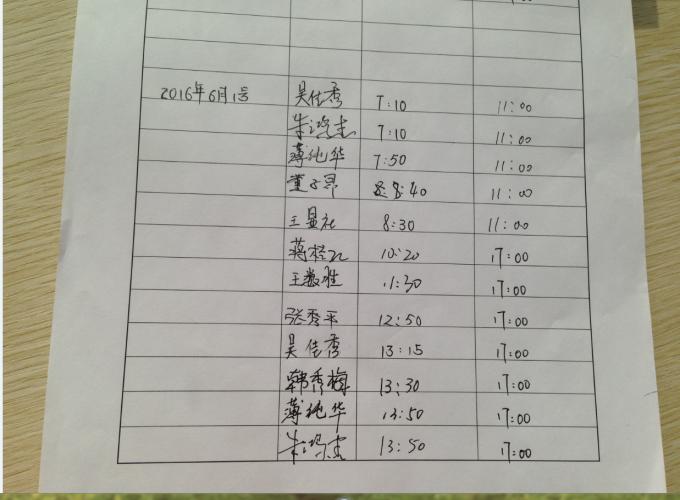 2016年6月1号 吴佳秀 7:10 11:00
朱鸿杰 7:10 11:00
薄纯华 7:50 11:00
董子昂 8:40 11:00
王显社 8:30 11:00
蒋桂 10:20 17:00
王数胜 11:30 17:00
张秀平 12:50 17:00
吴佳秀 13:15 17:00
韩秀梅 13:30 17:00
薄纯华 13:50 17:00
朱鸿杰 13:50 17:00